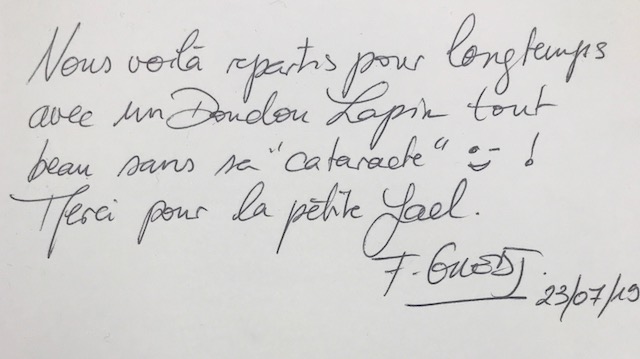 Nous voilà repartis pour longtemps
avec un Doudou Lapin tout
beau sans sa "cataracte" ;-) !
Merci pour la petite Yael.
F. GUEDJ.
23/07/19